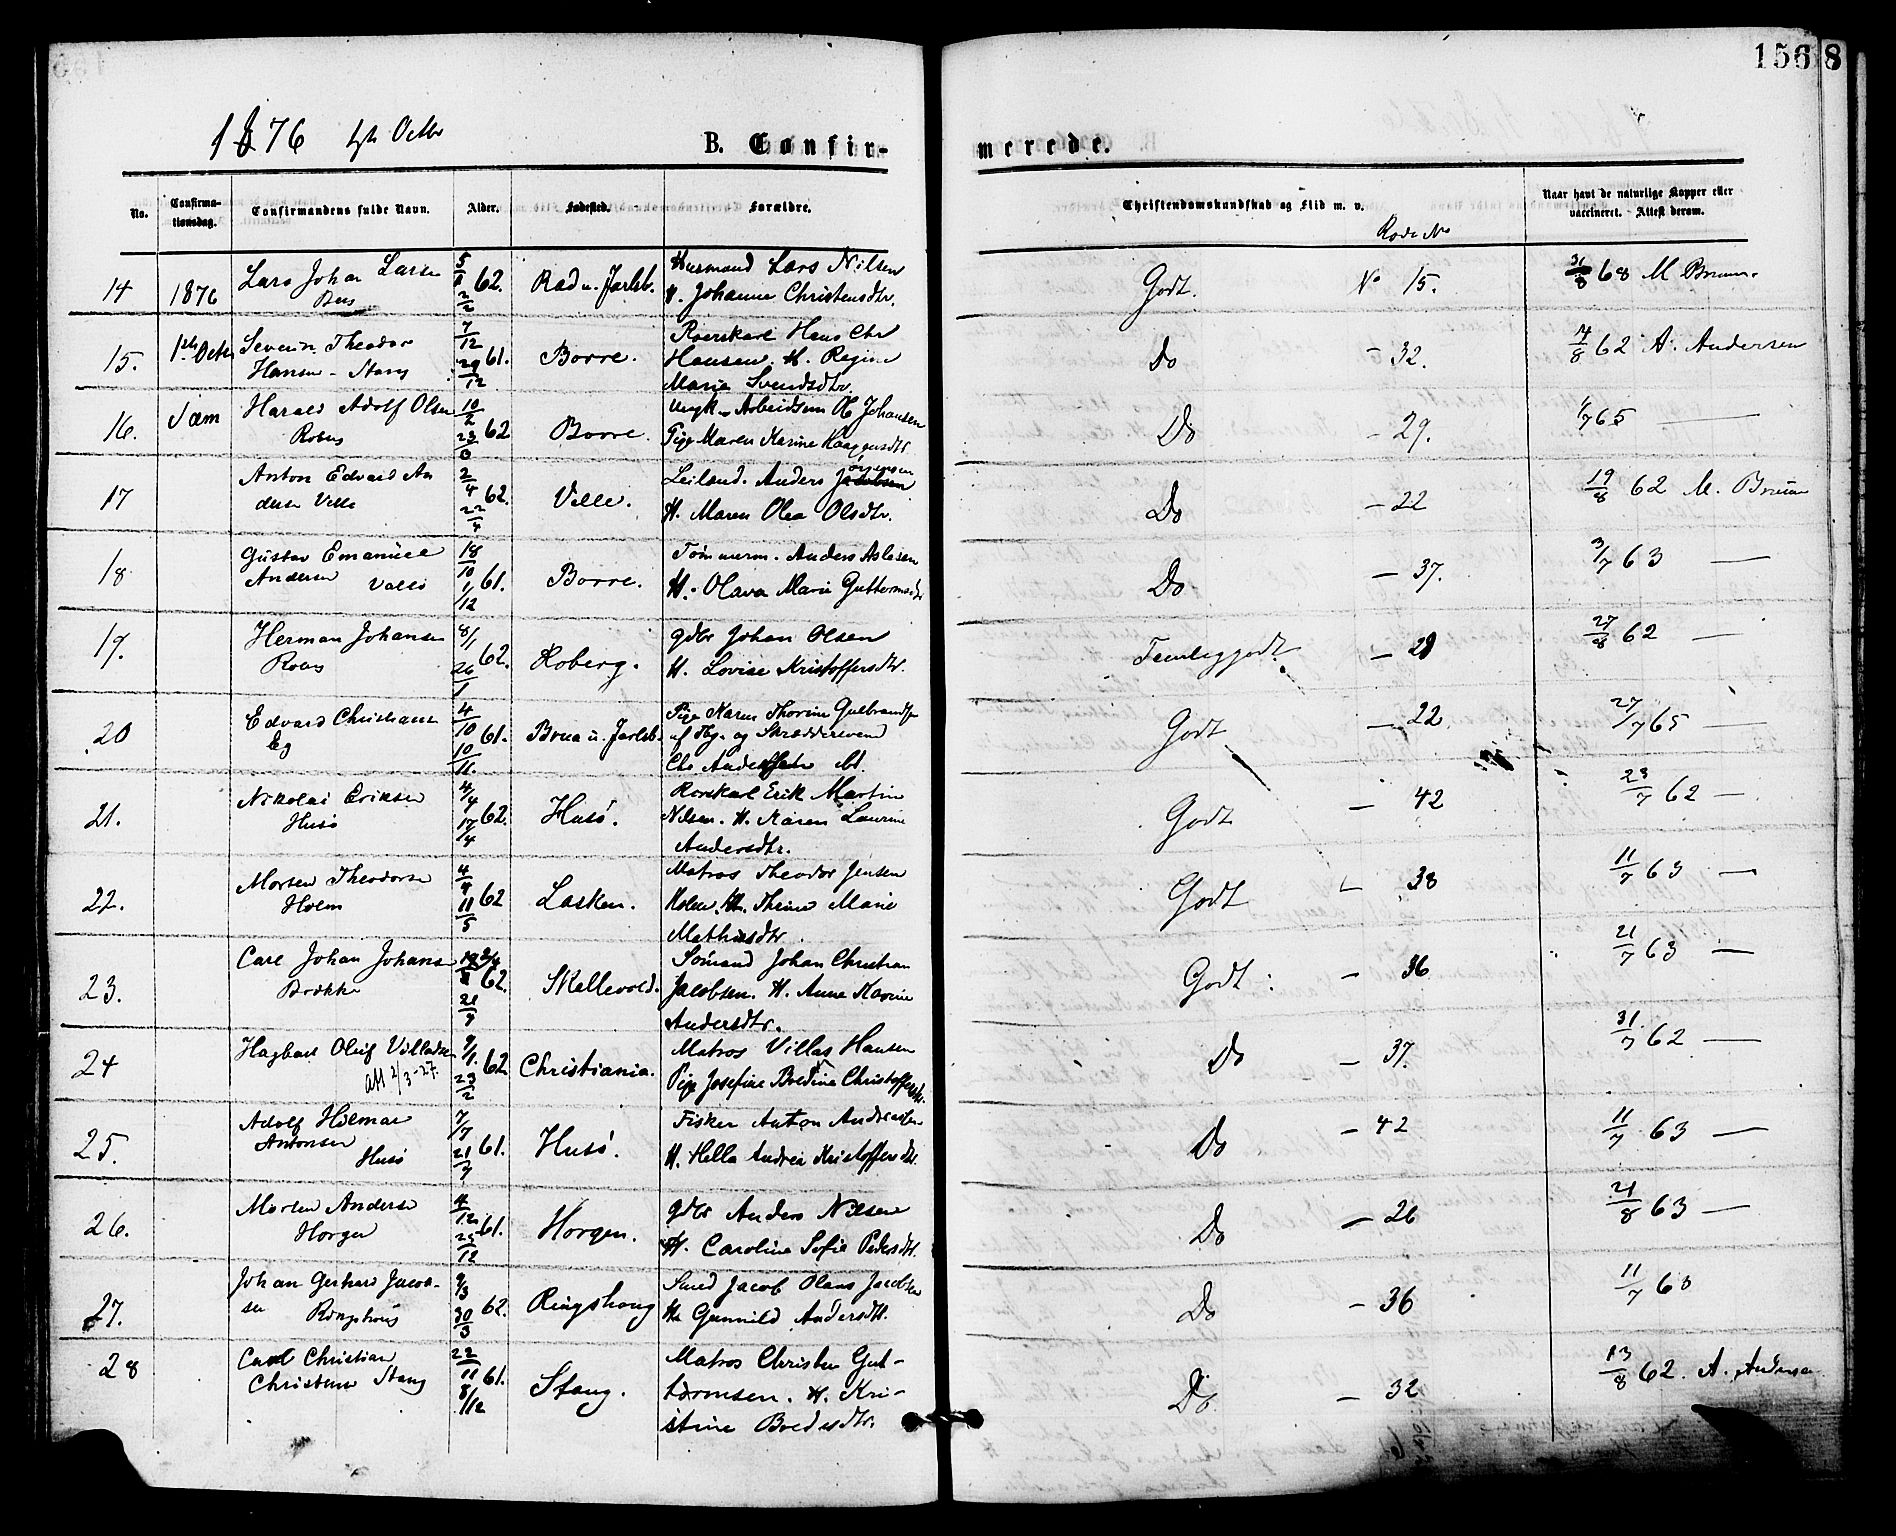 156 8
1876 1ste Octbr
B. Confir-
merede.
No.
Confirma-
tionsdag.
Confirmandens fulde Navn.
Alder.
Fødested.
Forældre.
Christendomskundskab og Flid m. v.
Rode No
Naar havt de naturlige Kopper eller
vaccineret. Attest derom.
14 1876 Lars Johan Larsen 62. Rad u. Jarlsb. Husmand Lars Nilsen
H. Johanne Christensdtr. Godt. No 15. 31/8 68 M Bruun.
15. 1ste Octbr Severin Theodor 7/12 29/12 61. Borre. Roerskarl Hans Chr
Hansen - Stang Hansen. H. Regine
Maria Svendsdtr. do - 32. 7/8 62 A. Andersen
16. Harald Adolf Olsen 10/2 62 Borre. Ungk. Arbeidsm Ole Johansen
Pige Maren Karine Haagensdtr Do - 29. 65 —
17 Anton Edvard An 2/4 22/4 62. Velle. Leilænd. Anders Jacobsen Jörgensen
dersen Velle H. Maren Olea Olsdtr. Do - 22 19/8 62 M. Bruun
18 Gustav Emanuel 18/10 1/12 61. Borre. Tömmerm. Anders Aslesen
Andersen H. Olava Marie Guttormsdtr Do - 37. 3/7 63 —
19. Herman Johansen 8/1 26/1 62. Roberg. Gdbr Johan Olsen
H. Lovise Kristoffersdtr. Temeliggodt - 29 27/8 62 —
20 Edvard Christiansen 4/10 10/11. 61. Brua u. Jarlsb. Pige Karen Thorine Gulbrandsen
Eg og Skræddersvend
Chr. Andersen Godt - 22 27/7 65 —
21. Nikolai Eriksen 4/4 17/4 62. Husö. Rorskarl Erik Martin
Husö Nilsen. H. Karen Laurine
Andersdtr. Godt - 42 23/7 62 —
22. Morten Theodorsen 11/5 62 Lasken. Matros Theodor Jensen
Holm Holm. H. Thrine Marie
Mathisdtr. Godt - 38 11/7 63 —
23. Carl Johan Johans 62. Skallevold. Sömand Johan Christian
Brekke Jacobsen. H. Anne Karine
Andersdtr. Godt - 36 21/7 63 —
24 Hagbart Oluf Villadsen 62 Christiania. Matros Villas Hansen
Att 2/3-27. Pige Josefine Bredine Christoffersdtr. Do - 37. 31/7 62 —
25. Adolf Hilmar 7/7 21/7 61. Husö. Fisker Anton Andreasen
Antonsen
Husö H. Hella Andrea Kristoffersdtr. Do - 42 11/7 63 —
26. Morten Andersen 4/12 25/12 61. Horgen. Gdbr Anders Nilsen
Horgen H. Caroline Sofie Pedersdtr. Do - 26 21/8 63 —
27. Johan Gerhard Jacob- 9/3 30/3 62. Ringshoug Smed Jacob Olaus Jacobsen
sen Ringshoug H. Gunnild Andersdtr. Do - 36 11/7 63
28 Carl Christian 22/11 8/12 61. Stang. Matros Christen Gut-
Christensen Stang tormsen. H. Kri-
stine Bredesdtr. Do - 32 13/8 62. A. Andersen